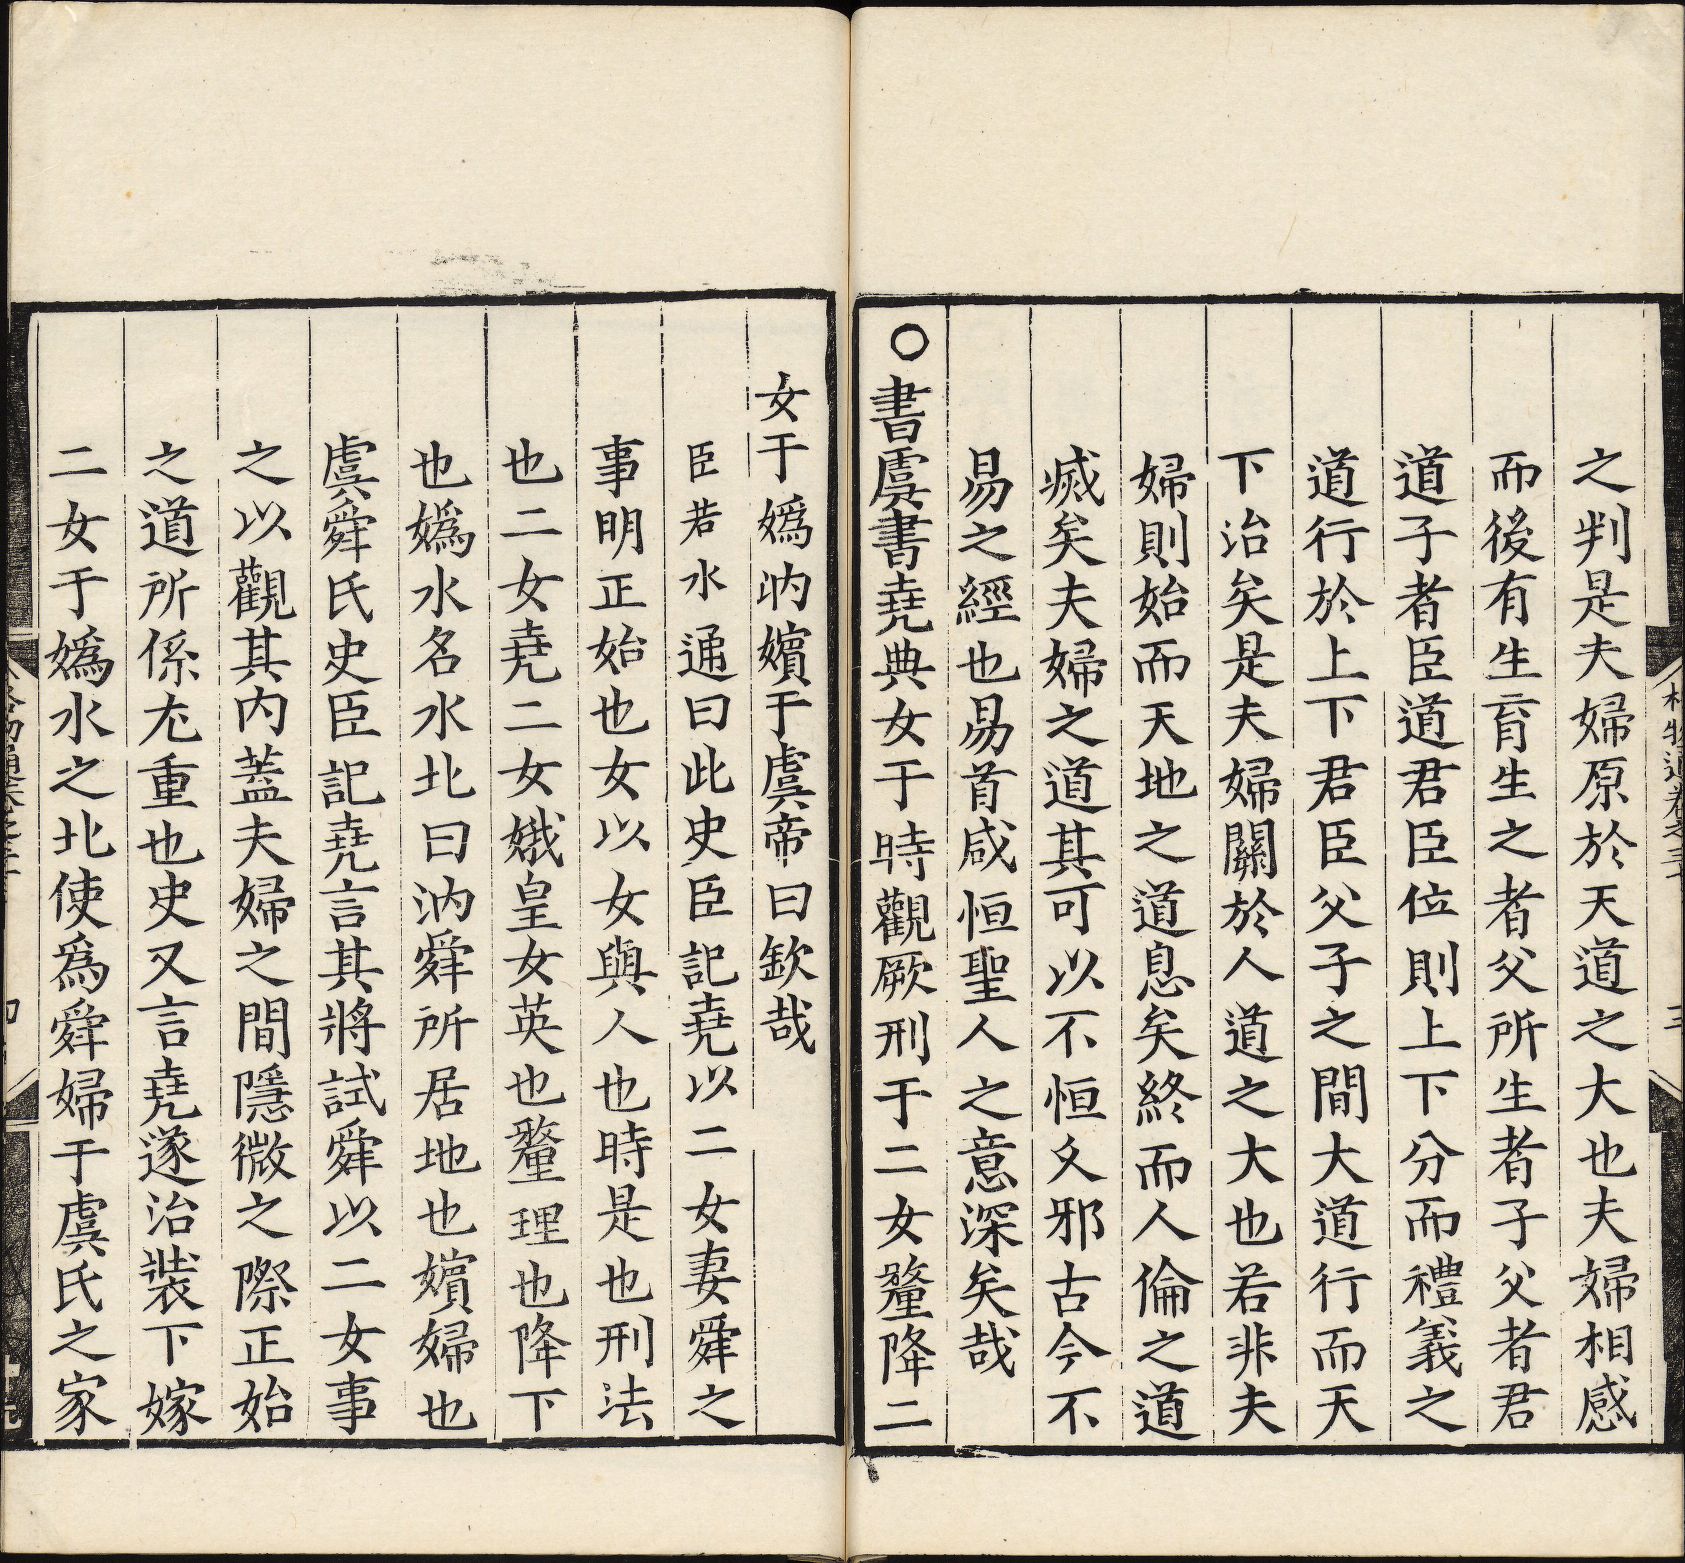 之判是夫婦原於天道之大也夫婦相感
而後有生育生之者父所生者子父者君
道子者臣道君臣位則上下分而禮義之
道行於上下君臣父子之間大道行而天
下治矣是夫婦關於人道之大也若非夫
婦則始而天地之道息矣終而人倫之道
滅矣夫婦之道其可以不恒久邪古今不
易之經也易首咸恒聖人之意深矣哉
○書虞書堯典女于時觀厥刑于二女釐降二
女于嬀汭嬪于虞帝曰欽哉
臣若水通曰此史臣記堯以二女妻舜之
事明正始也女以女與人也時是也刑法
也二女堯二女娥皇女英也釐理也降下
也嬀水名水北曰汭舜所居地也嬪婦也
虞舜氏史臣記堯言其將試舜以二女事
之以觀其內蓋夫婦之間隱微之際正始
之道所係尢重也史又言堯遂治裝下嫁
二女于嬀水之北使爲舜婦于虞氏之家